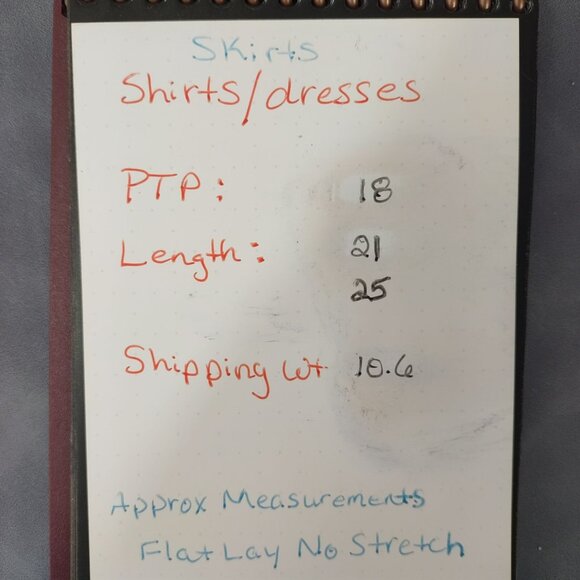 Skirts
Shirts/dresses
PTP: 18
Length: 21
25
Shipping Wt 10.6
Approx Measurements
Flat Lay No Stretch